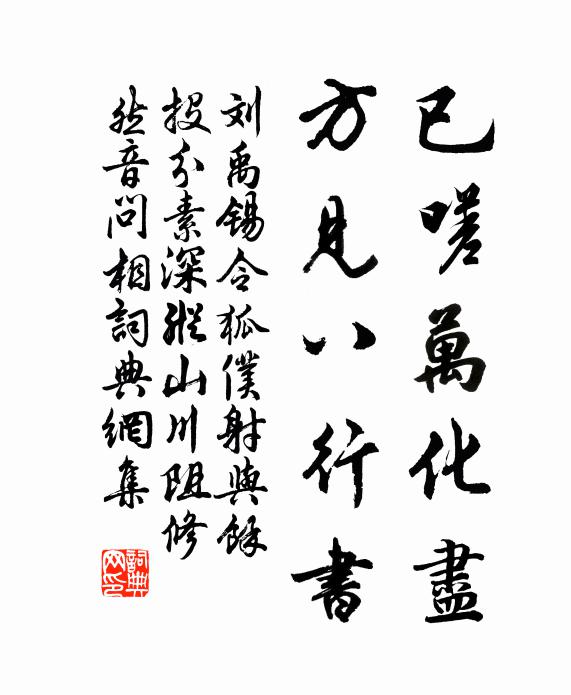 已嗟萬化盡
方見八行書
刘禹锡令狐僕射與餘
投分素深縱山川阻修
然音問相詞典網集
詞典网印